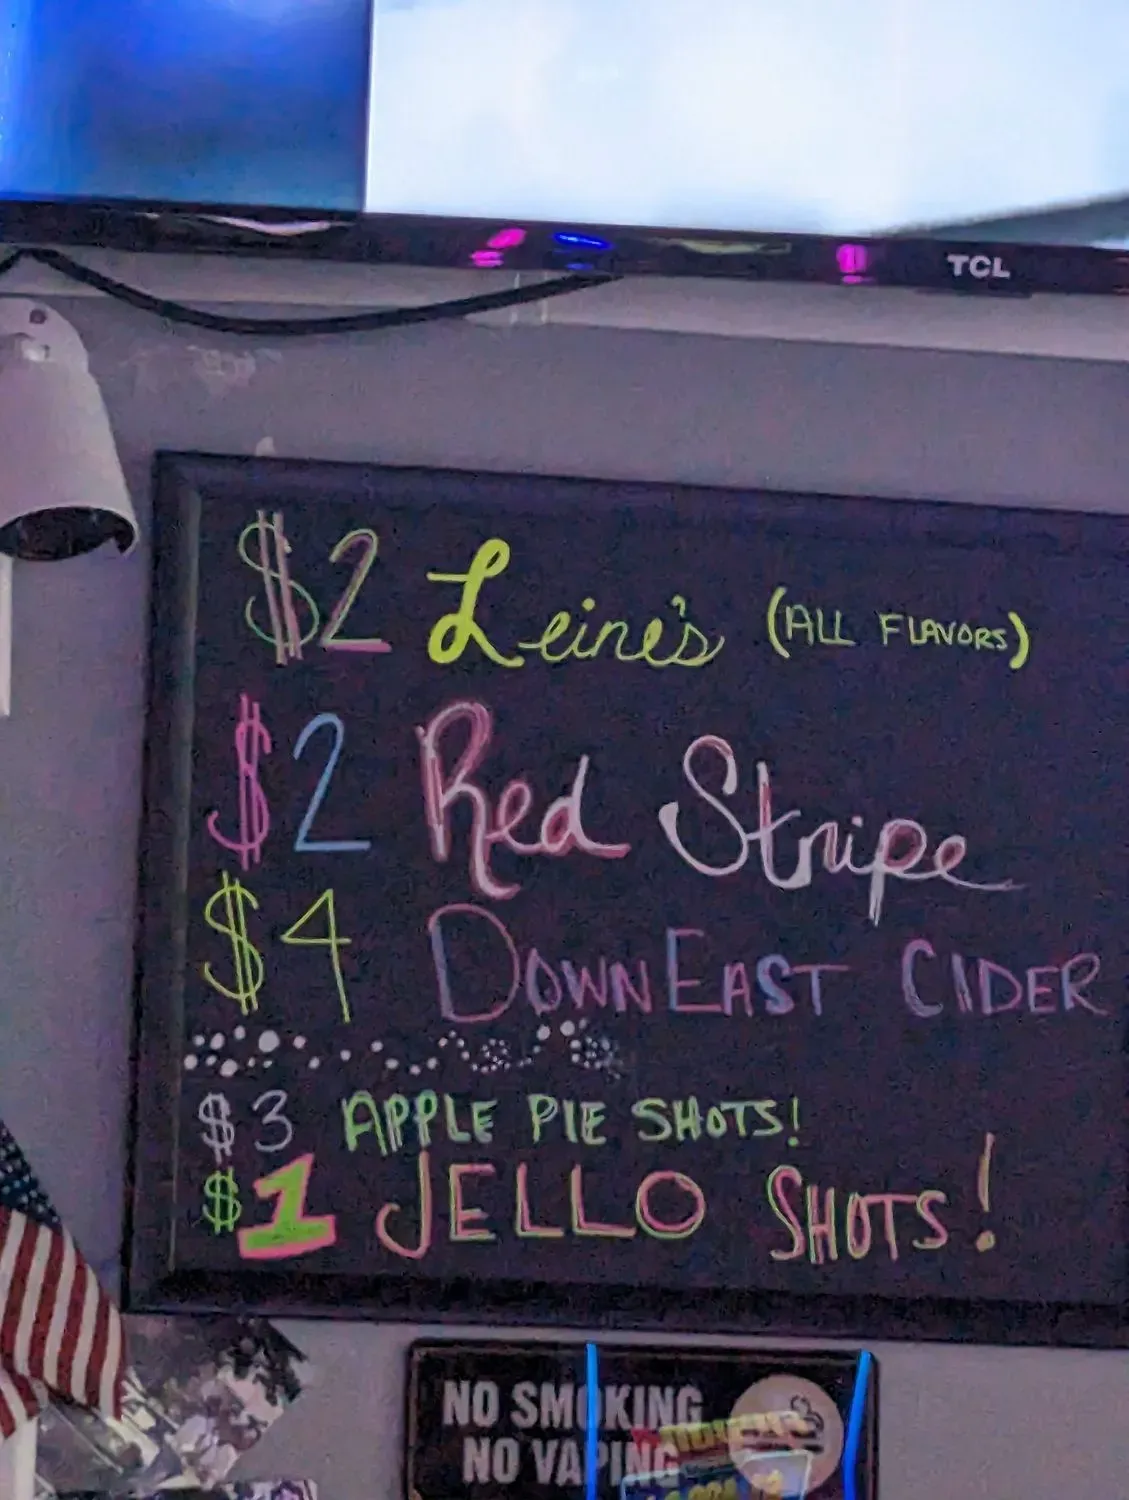 TCL
$2 Leine's (ALL FLAVORS)
$2 Red Stripe
$4 DOWNEAST CIDER
$3 APPLE PIE SHOTS!
$1 JELLO SHOTS!
NO SMOKING
NO VAPING